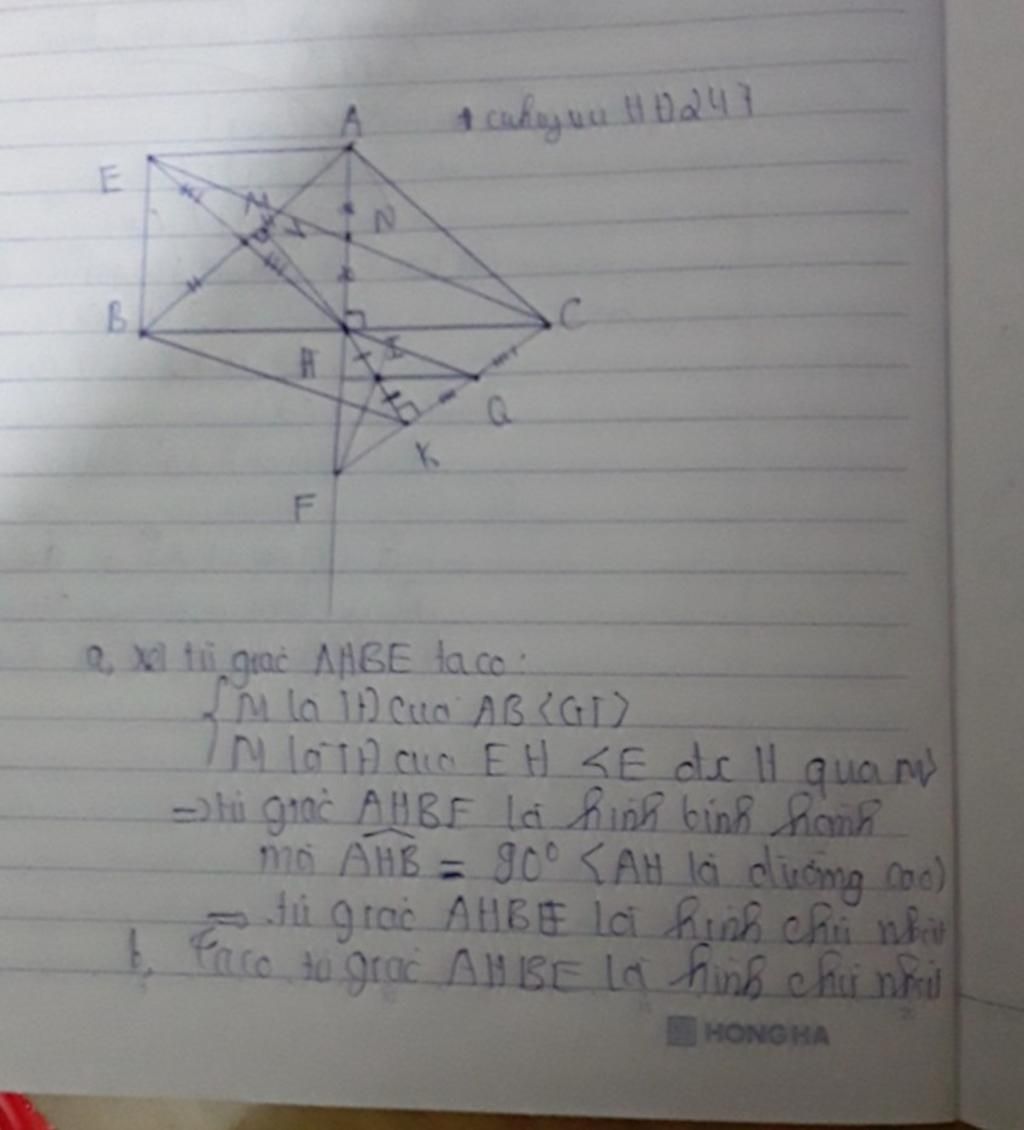 A
E
M
N
B
C
H
I
Q
K
F
a, xét tứ giác AHBE ta có:
M là TĐ của AB <GT>
M là TĐ của EH <E đx H qua M>
=> tứ giác AHBE là hình bình hành
mà AHB = 90° <AH là đường cao)
=> tứ giác AHBE là hình chữ nhật
b, Ta có tứ giác AHBE là hình chữ nhật
HONG HA